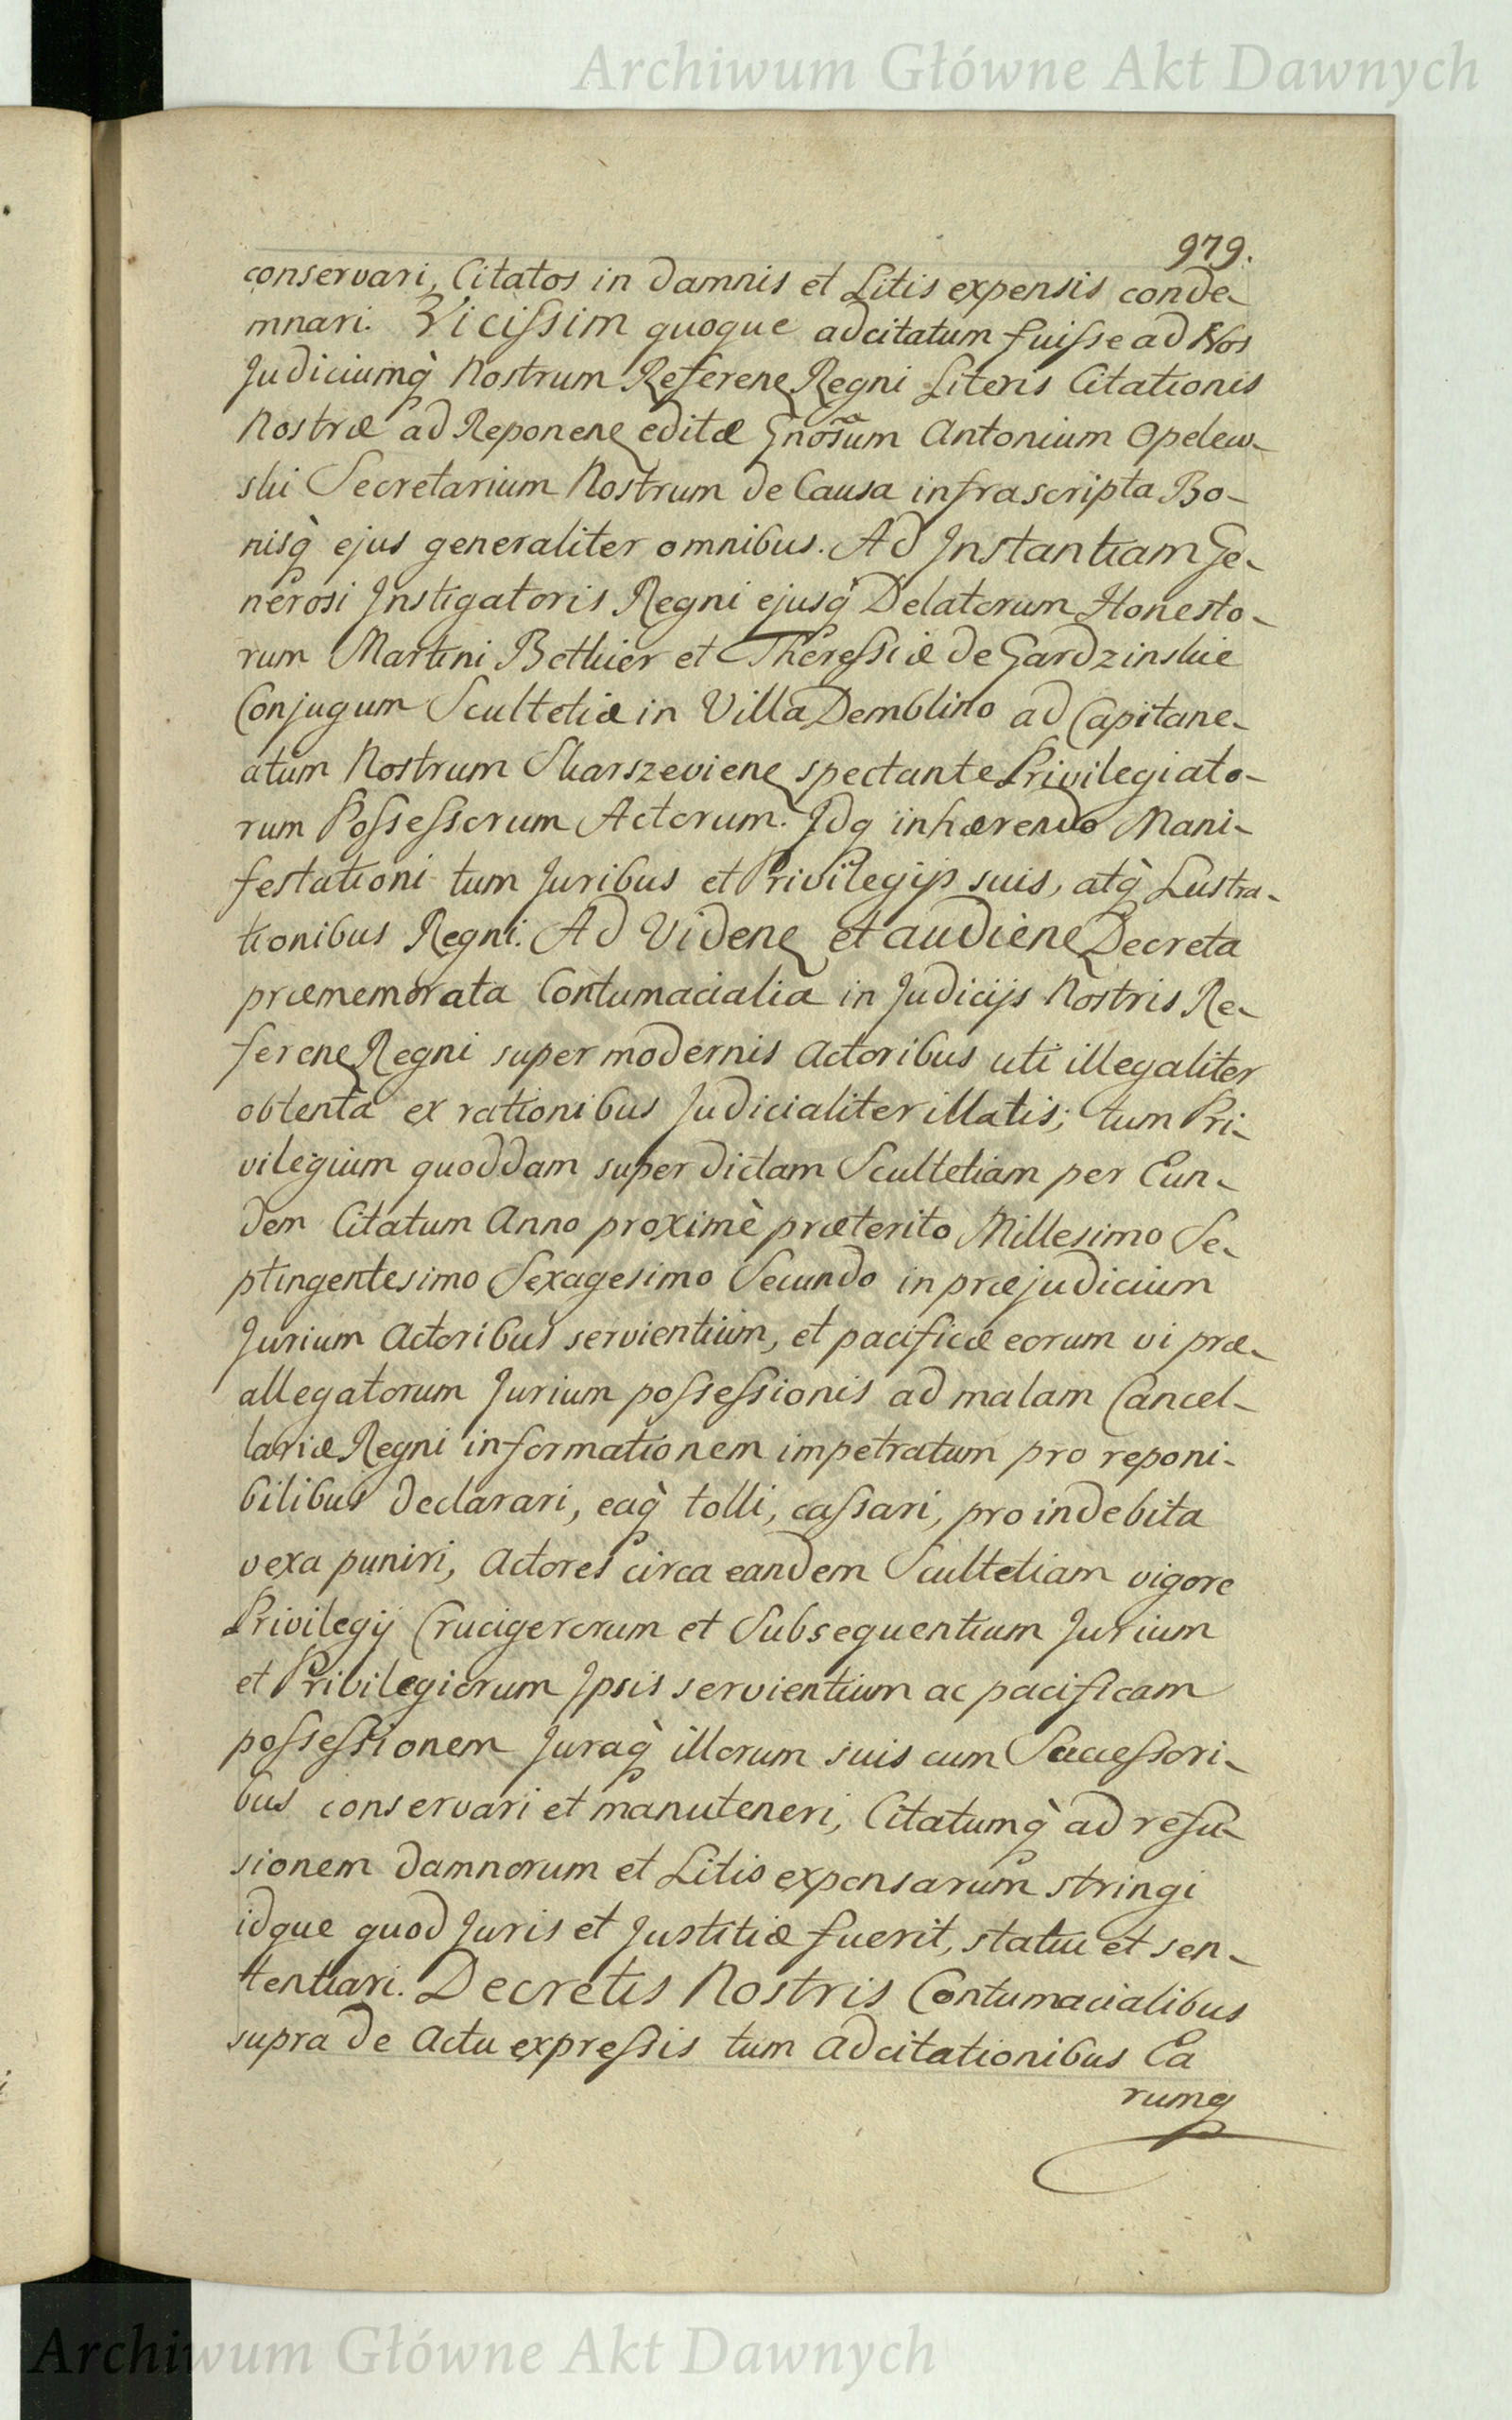 Archiwum Główne Akt Dawnych
979.
conservari, Citatos in damnis et Litis expensis conde-
mnari. Vicissim quoque adcitatum fuisse ad Nos
Judiciumq̀ Nostrum Referenꝫ Regni Literis Citationis
Nostræ ad Reponenꝫ editæ Gnosum Antonium Opelew-
ski Secretarium Nostrum de Causa infrascripta Bo-
nisq̀ ejus generaliter omnibus. Ad Instantiam Ge-
nerosi Instigatoris Regni ejusq̀ Delatorum Honesto-
rum Martini Bethier et Theressiæ de Gardzinskie
Conjugum Scultetiæ in Villa Demblino ad Capitane-
atum Nostrum Skarszevienꝫ spectante Privilegiato-
rum Possessorum Actorum. Idq inhærendo Mani-
festationi tum Juribus et Privilegijs suis, atq̀ Lustra-
tionibus Regni. Ad Videnꝫ et audienꝫ Decreta
præmemorata Contumacialia in Judicijs Nostris Re-
ferenꝫ Regni super modernis Actoribus uti illegaliter
obtenta ex rationibus Judicialiter illatis; tum Pri-
vilegium quoddam super dictam Scultetiam per Eun-
dem Citatum Anno proximè præterito Millesimo Se-
ptingentesimo Sexagesimo Secundo in præjudicium
Jurium Actoribus servientium, et pacificæ eorum vi præ-
allegatorum Jurium possessionis ad malam Cancel-
lariæ Regni informationem impetratum pro reponi-
bilibus declarari, eaq̀ tolli, cassari, pro indebita
vexa puniri, Actores circa eandem Scultetiam vigore
Privilegij Crucigerorum et Subsequentium Jurium
et Privilegiorum Ipsis servientium ac pacificam
possessionem Juraq̀ illorum suis cum Successori-
bus conservari et manuteneri, Citatumq̀ ad refu-
sionem damnorum et Litis expensarum stringi
idque quod Juris et Justitiæ fuerit, statui et sen-
tentiari. Decretis Nostris Contumacialibus
supra de Actu expressis tum Adcitationibus Ea
rumq
Archiwum Główne Akt Dawnych